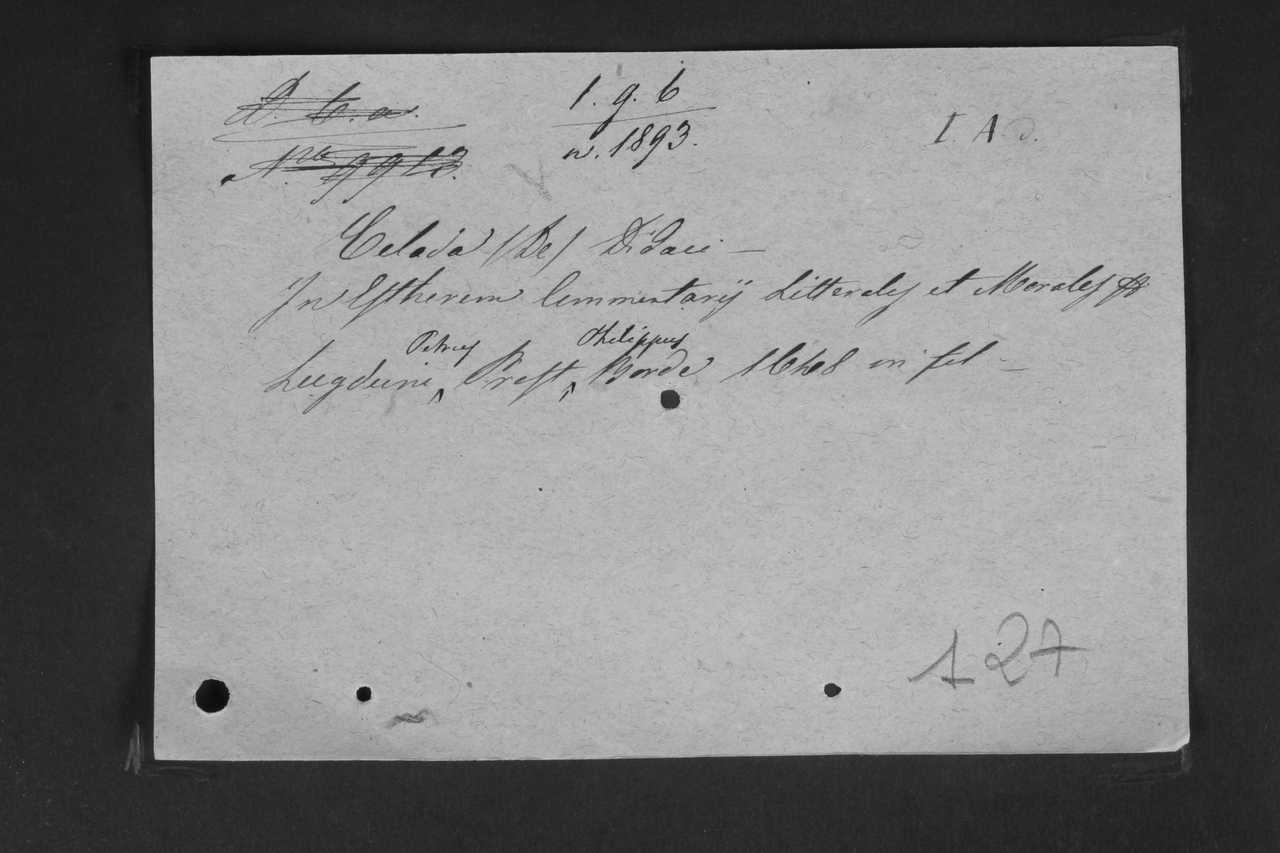 1. g. 6
n. 1893.
I. A
Celada (De) Didaci —
In Estherem Commentarij Litterales et Morales
Petrus Philippus
Lugduni Prost Borde 1648 in fol —
127